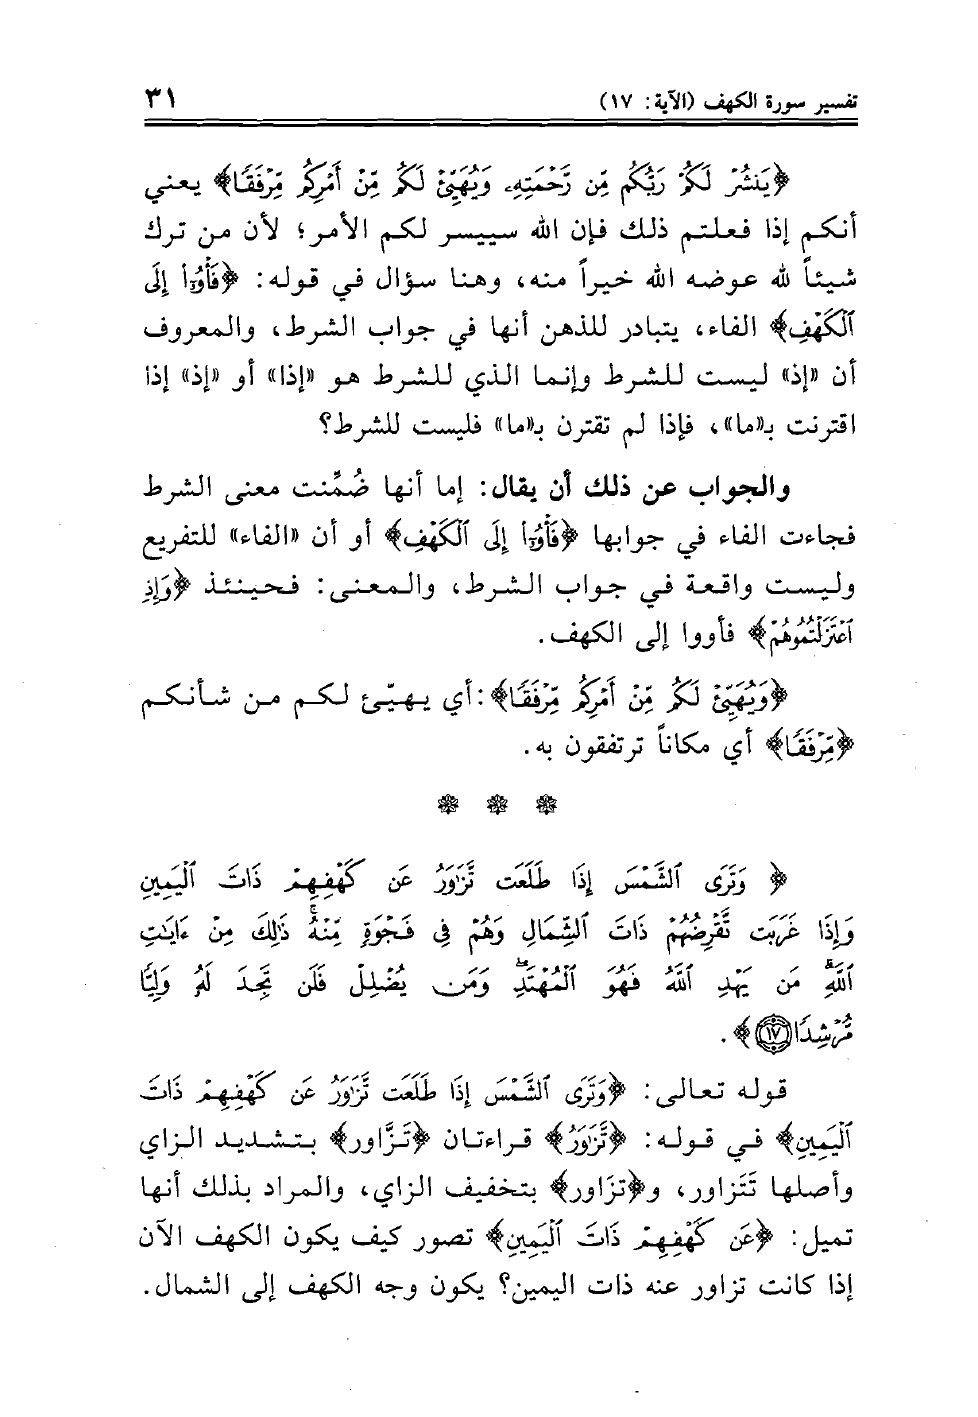 تفسير سورة الكهف (الآية: ١٧) ٣١
﴿يَنشُرْ لَكُمْ رَبُّكُم مِّن رَّحْمَتِهِۦ وَيُهَيِّئْ لَكُم مِّنْ أَمْرِكُم مِّرْفَقًا﴾ يعني
أنكم إذا فعلتم ذلك فإن الله سييسر لكم الأمر؛ لأن من ترك
شيئاً لله عوضه الله خيراً منه، وهنا سؤال في قوله: ﴿فَأْوُۥٓا۟ إِلَى
ٱلْكَهْفِ﴾ الفاء، يتبادر للذهن أنها في جواب الشرط، والمعروف
أن «إذ» ليست للشرط وإنما الذي للشرط هو «إذا» أو «إذ» إذا
اقترنت بـ«ما»، فإذا لم تقترن بـ«ما» فليست للشرط؟
والجواب عن ذلك أن يقال: إما أنها ضُمِّنت معنى الشرط
فجاءت الفاء في جوابها ﴿فَأْوُۥٓا۟ إِلَى ٱلْكَهْفِ﴾ أو أن «الفاء» للتفريع
وليست واقعة في جواب الشرط، والمعنى: فحينئذ ﴿وَإِذِ
ٱعْتَزَلْتُمُوهُمْ﴾ فأووا إلى الكهف.
﴿وَيُهَيِّئْ لَكُم مِّنْ أَمْرِكُم مِّرْفَقًا﴾: أي يهيّئ لكم من شأنكم
﴿مِّرْفَقًا﴾ أي مكاناً ترتفقون به.
﴿ وَتَرَى ٱلشَّمْسَ إِذَا طَلَعَت تَّزَٰوَرُ عَن كَهْفِهِمْ ذَاتَ ٱلْيَمِينِ
وَإِذَا غَرَبَت تَّقْرِضُهُمْ ذَاتَ ٱلشِّمَالِ وَهُمْ فِى فَجْوَةٍ مِّنْهُ ۚ ذَٰلِكَ مِنْ ءَايَٰتِ
ٱللَّهِ ۗ مَن يَهْدِ ٱللَّهُ فَهُوَ ٱلْمُهْتَدِ ۖ وَمَن يُضْلِلْ فَلَن تَجِدَ لَهُۥ وَلِيًّا
مُّرْشِدًا ١٧﴾.
قوله تعالى: ﴿وَتَرَى ٱلشَّمْسَ إِذَا طَلَعَت تَّزَٰوَرُ عَن كَهْفِهِمْ ذَاتَ
ٱلْيَمِينِ﴾ في قوله: ﴿تَّزَٰوَرُ﴾ قراءتان ﴿تَزَّاور﴾ بتشديد الزاي
وأصلها تَتَزاور، و﴿تزَاور﴾ بتخفيف الزاي، والمراد بذلك أنها
تميل: ﴿عَن كَهْفِهِمْ ذَاتَ ٱلْيَمِينِ﴾ تصور كيف يكون الكهف الآن
إذا كانت تزاور عنه ذات اليمين؟ يكون وجه الكهف إلى الشمال.